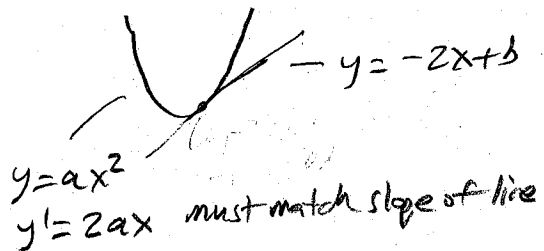 — y = -2x+b
y=ax²
y'=2ax must match slope of line